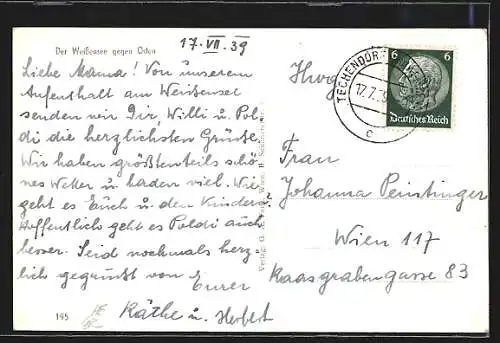 17.VII.39
Der Weißensee gegen Osten
Liebe Mama! Von unserem
Aufenthalt am Weißensee
senden wir Dir, Willi u. Pol-
di die herzlichsten Grüße.
Wir haben größtenteils schö-
nes Wetter u. baden viel. Wie
geht es Euch u. den Kindern
Hoffentlich geht es Poldi auch
besser. Seid nochmals herz-
lich gegrüßt von
Eurer
Käthe u. Herbert
195
TECHENDORF
17.7.39
c
6 6
Deutsches Reich
Frau
Johanna Peintinger
Wien 117
Haasgrabengasse 83